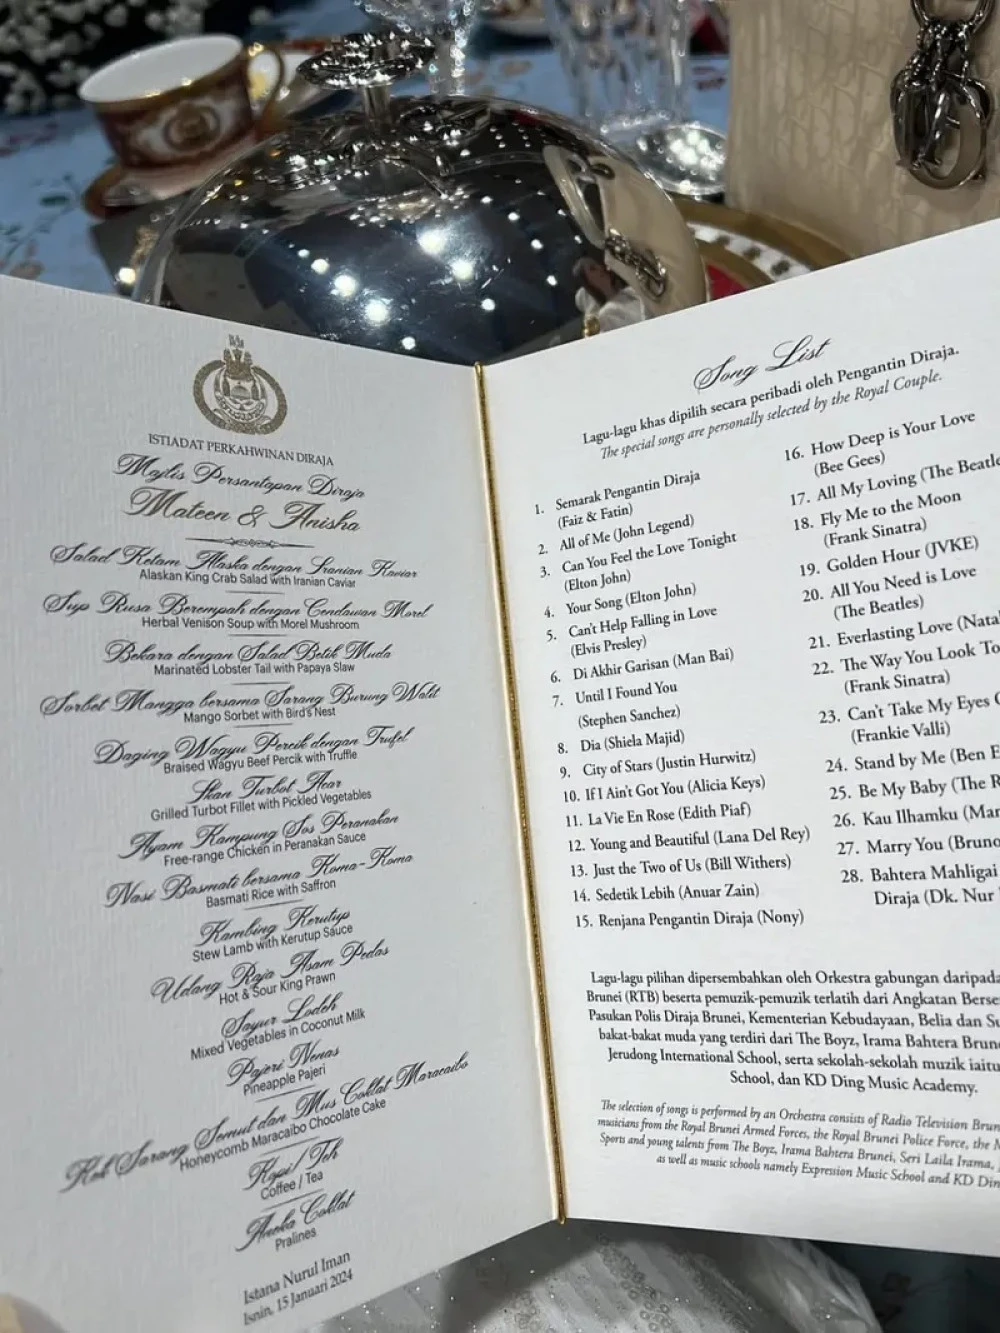 ISTIADAT PERKAHWINAN DIRAJA
Majlis Persantapan Diraja
Mateen & Anisha
Salad Ketam Alaska dengan Iranian Kaviar
Alaskan King Crab Salad with Iranian Caviar
Sup Rusa Berempah dengan Cendawan Morel
Herbal Venison Soup with Morel Mushroom
Bekara dengan Salad Betik Muda
Marinated Lobster Tail with Papaya Slaw
Sorbet Mangga bersama Sarang Burung Walit
Mango Sorbet with Bird's Nest
Daging Wagyu Percik dengan Trufel
Braised Wagyu Beef Percik with Truffle
Ikan Turbot Acar
Grilled Turbot Fillet with Pickled Vegetables
Ayam Kampung Sos Peranakan
Free-range Chicken in Peranakan Sauce
Nasi Basmati bersama Koma-Koma
Basmati Rice with Saffron
Kambing Kerutup
Stew Lamb with Kerutup Sauce
Udang Raja Asam Pedas
Hot & Sour King Prawn
Sayur Lodeh
Mixed Vegetables in Coconut Milk
Pajeri Nenas
Pineapple Pajeri
Kek Sarang Semut dan Mus Coklat Maracaibo
Honeycomb Maracaibo Chocolate Cake
Kopi / Teh
Coffee / Tea
Aneka Coklat
Pralines
Istana Nurul Iman
Isnin, 15 Januari 2024
Song List
Lagu-lagu khas dipilih secara peribadi oleh Pengantin Diraja.
The special songs are personally selected by the Royal Couple.
1. Semarak Pengantin Diraja
(Faiz & Fatin)
2. All of Me (John Legend)
3. Can You Feel the Love Tonight
(Elton John)
4. Your Song (Elton John)
5. Can't Help Falling in Love
(Elvis Presley)
6. Di Akhir Garisan (Man Bai)
7. Until I Found You
(Stephen Sanchez)
8. Dia (Shiela Majid)
9. City of Stars (Justin Hurwitz)
10. If I Ain't Got You (Alicia Keys)
11. La Vie En Rose (Edith Piaf)
12. Young and Beautiful (Lana Del Rey)
13. Just the Two of Us (Bill Withers)
14. Sedetik Lebih (Anuar Zain)
15. Renjana Pengantin Diraja (Nony)
16. How Deep is Your Love
(Bee Gees)
17. All My Loving (The Beatle
18. Fly Me to the Moon
(Frank Sinatra)
19. Golden Hour (JVKE)
20. All You Need is Love
(The Beatles)
21. Everlasting Love (Nata
22. The Way You Look To
(Frank Sinatra)
23. Can't Take My Eyes
(Frankie Valli)
24. Stand by Me (Ben E
25. Be My Baby (The R
26. Kau Ilhamku (Man
27. Marry You (Bruno
28. Bahtera Mahligai
Diraja (Dk. Nur
Lagu-lagu pilihan dipersembahkan oleh Orkestra gabungan daripada
Brunei (RTB) beserta pemuzik-pemuzik terlatih dari Angkatan Berse
Pasukan Polis Diraja Brunei, Kementerian Kebudayaan, Belia dan Su
bakat-bakat muda yang terdiri dari The Boyz, Irama Bahtera Brun
Jerudong International School, serta sekolah-sekolah muzik iaitu
School, dan KD Ding Music Academy.
The selection of songs is performed by an Orchestra consists of Radio Television Brun
musicians from the Royal Brunei Armed Forces, the Royal Brunei Police Force, the M
Sports and young talents from The Boyz, Irama Bahtera Brunei, Seri Laila Irama,
as well as music schools namely Expression Music School and KD Din